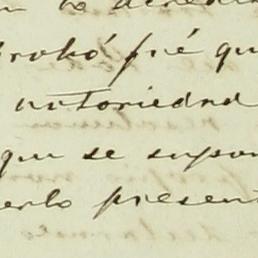 robó fué qu
notoriedad
que se supon
erlo present